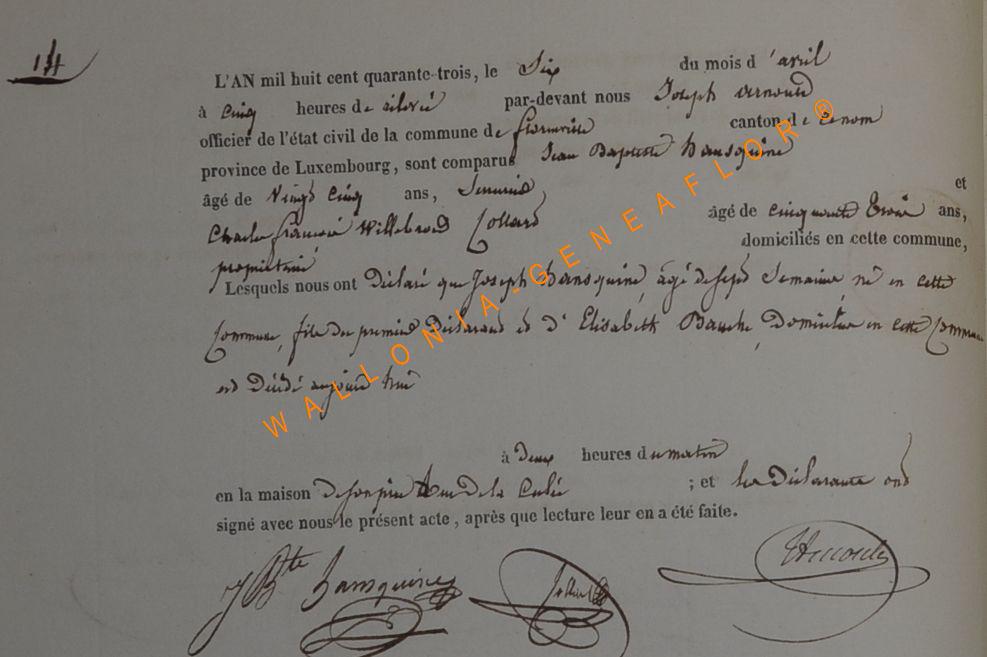 14
L'AN mil huit cent quarante-trois, le Six du mois d'avril
à cinq heures de relevé par-devant nous Joseph Arnould
officier de l'état civil de la commune de canton de
province de Luxembourg, sont comparus Jean Baptiste Hansquine
âgé de Vingt cinq ans, et
Charles françois Willebrord Collard âgé de cinquante trois ans,
propriétaire domiciliés en cette commune,
Lesquels nous ont Déclaré que Joseph Hansquine, âgé de sept Semaines né en cette
Commune, fils du premier Déclarant et d'Elisabeth Domiciliée en cette Commune
est Décédé aujourd'hui
à Deux heures du matin
en la maison de son père Rue de la ; et les Déclarants ont
signé avec nous le présent acte, après que lecture leur en a été faite.
J Bte Hansquine
WALLONIA-GENEAFLOR®